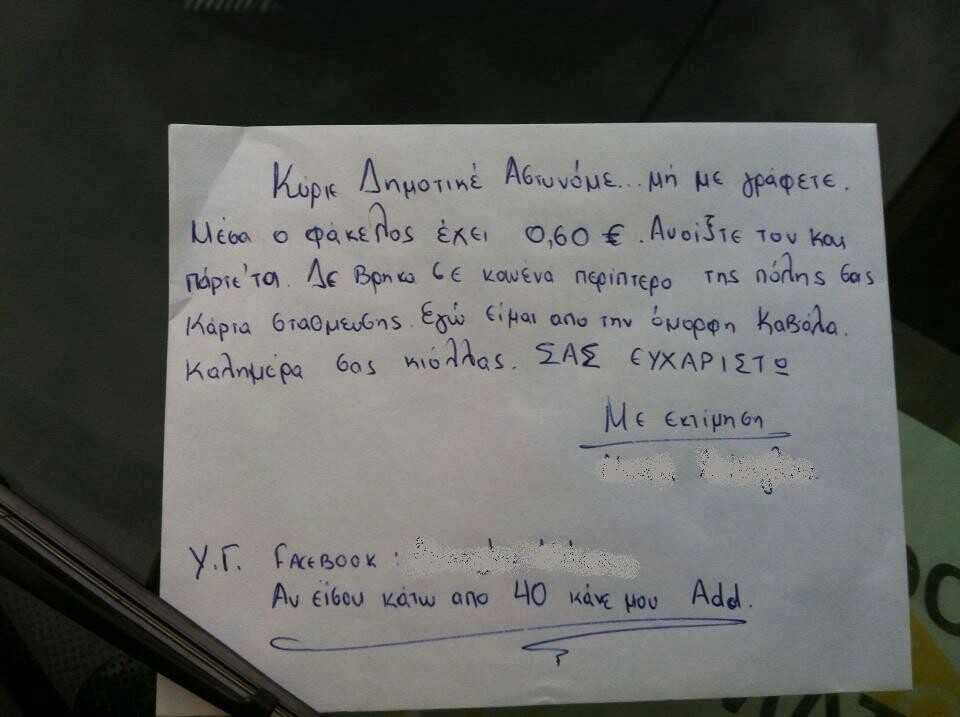 Κύριε Δημοτικέ Αστυνόμε... μή με γράφετε.
Μέσα ο φάκελος έχει 0,60 €. Ανοίξτε τον και
πάρτε'τα. Δε βρηκα σε κανένα περίπτερο της πόλης σας
κάρτα στάθμευσης. Εγώ είμαι απο την όμορφη Καβάλα.
Καλημέρα σας κιόλλας. ΣΑΣ ΕΥΧΑΡΙΣΤΩ
Με εκτίμηση
Υ.Γ. FACEBOOK :
Αν είσου κάτω απο 40 κάνε μου Add.